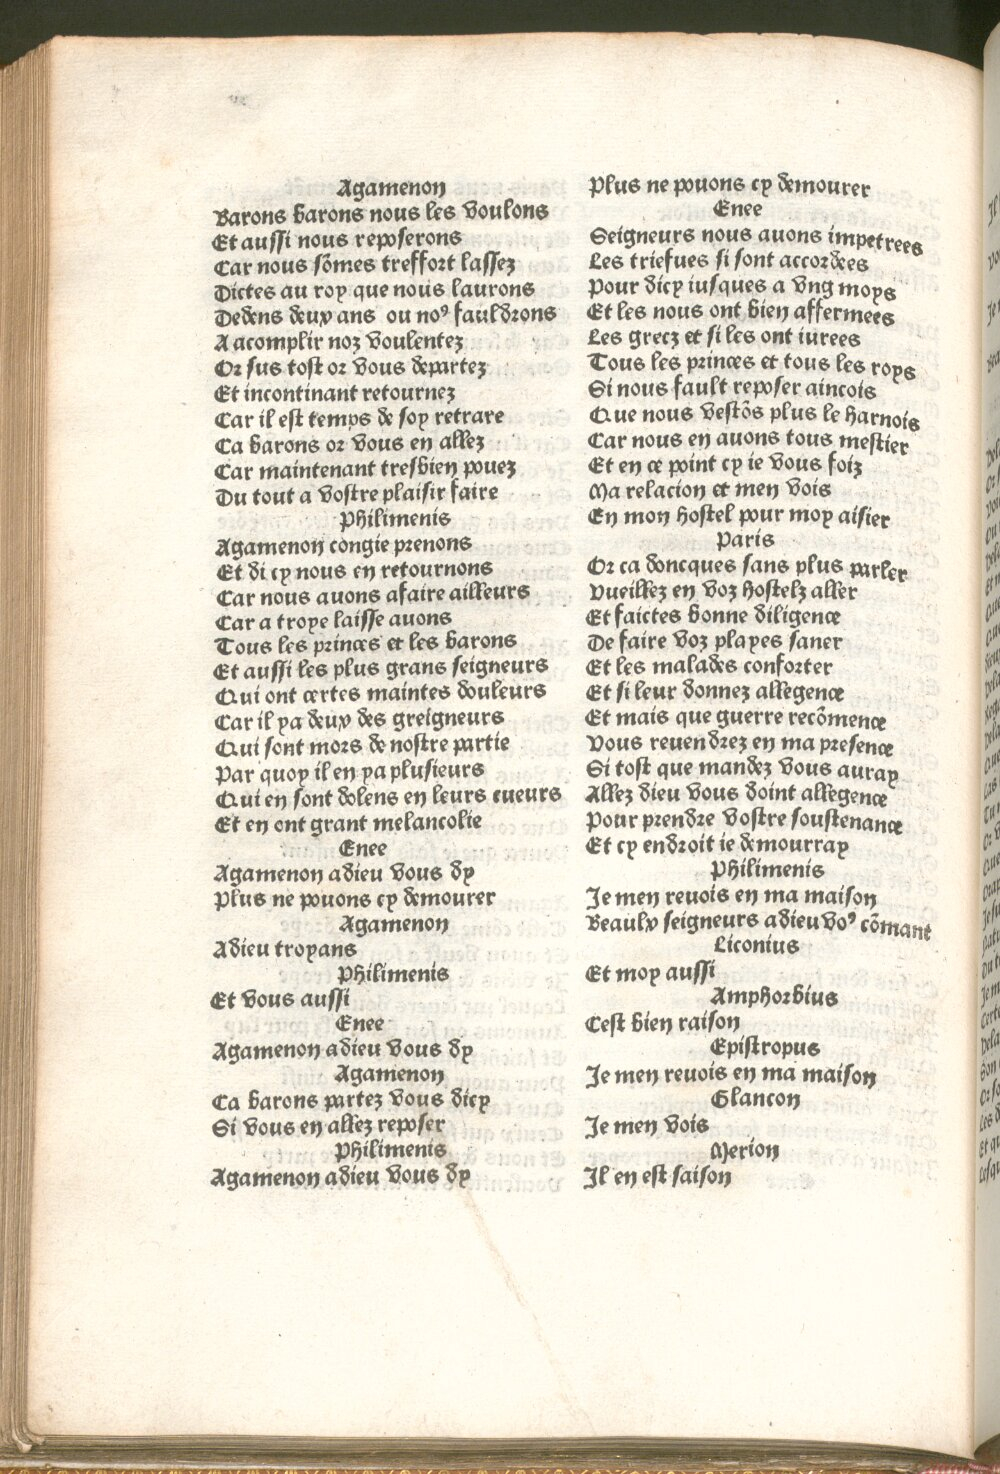 Agamenon
Barons barons nous les voulons
Et aussi nous reposerons
Car nous sõmes treffort lassez
Dictes au roy que nous laurons
Dedens deux ans ou noꝰ fauldrons
A acomplir noz voulentez
Or sus tost or vous departez
Et incontinant retournez
Car il est temps de soy retrare
Ca barons or vous en allez
Car maintenant tresbien pouez
Du tout a vostre plaisir faire
Philimenis
Agamenon congie prenons
Et di cy nous en retournons
Car nous auons afaire ailleurs
Car a troye laisse auons
Tous les princes et les barons
Et aussi les plus grans seigneurs
Qui ont certes maintes douleurs
Car il ya deux des greigneurs
Qui sont mors de nostre partie
Par quoy il en ya plusieurs
Qui en sont dolens en leurs cueurs
Et en ont grant melancolie
Enee
Agamenon adieu vous dy
Plus ne pouons cy demourer
Agamenon
Adieu troyans
Philimenis
Et vous aussi
Enee
Agamenon adieu vous dy
Agamenon
Ca barons partez vous dicy
Si vous en allez reposer
Philimenis
Agamenon adieu vous dy
Plus ne pouons cy demourer
Enee
Seigneurs nous auons impetrees
Les triefues si sont accordees
Pour dicy iusques a vng moys
Et les nous ont bien affermees
Les grecz et si les ont iurees
Tous les princes et tous les roys
Si nous fault reposer aincois
Que nous vestõs plus le harnois
Car nous en auons tous mestier
Et en ce point cy ie vous foiz
Ma relacion et men vois
En mon hostel pour moy aisier
Paris
Or ca doncques sans plus parler
Vueillez en voz hostelz aller
Et faictes bonne diligence
De faire voz playes saner
Et les malades conforter
Et si leur donnez allegence
Et mais que guerre recõmence
Vous reuendrez en ma presence
Si tost que mandez vous auray
Allez dieu vous doint allegence
Pour prendre vostre soustenance
Et cy endroit ie demourray
Philimenis
Je men reuois en ma maison
Beaulx seigneurs adieu voꝰ cõmant
Liconius
Et moy aussi
Amphorbius
Cest bien raison
Epistropus
Je men reuois en ma maison
Glancon
Je men vois
Merion
Il en est saison